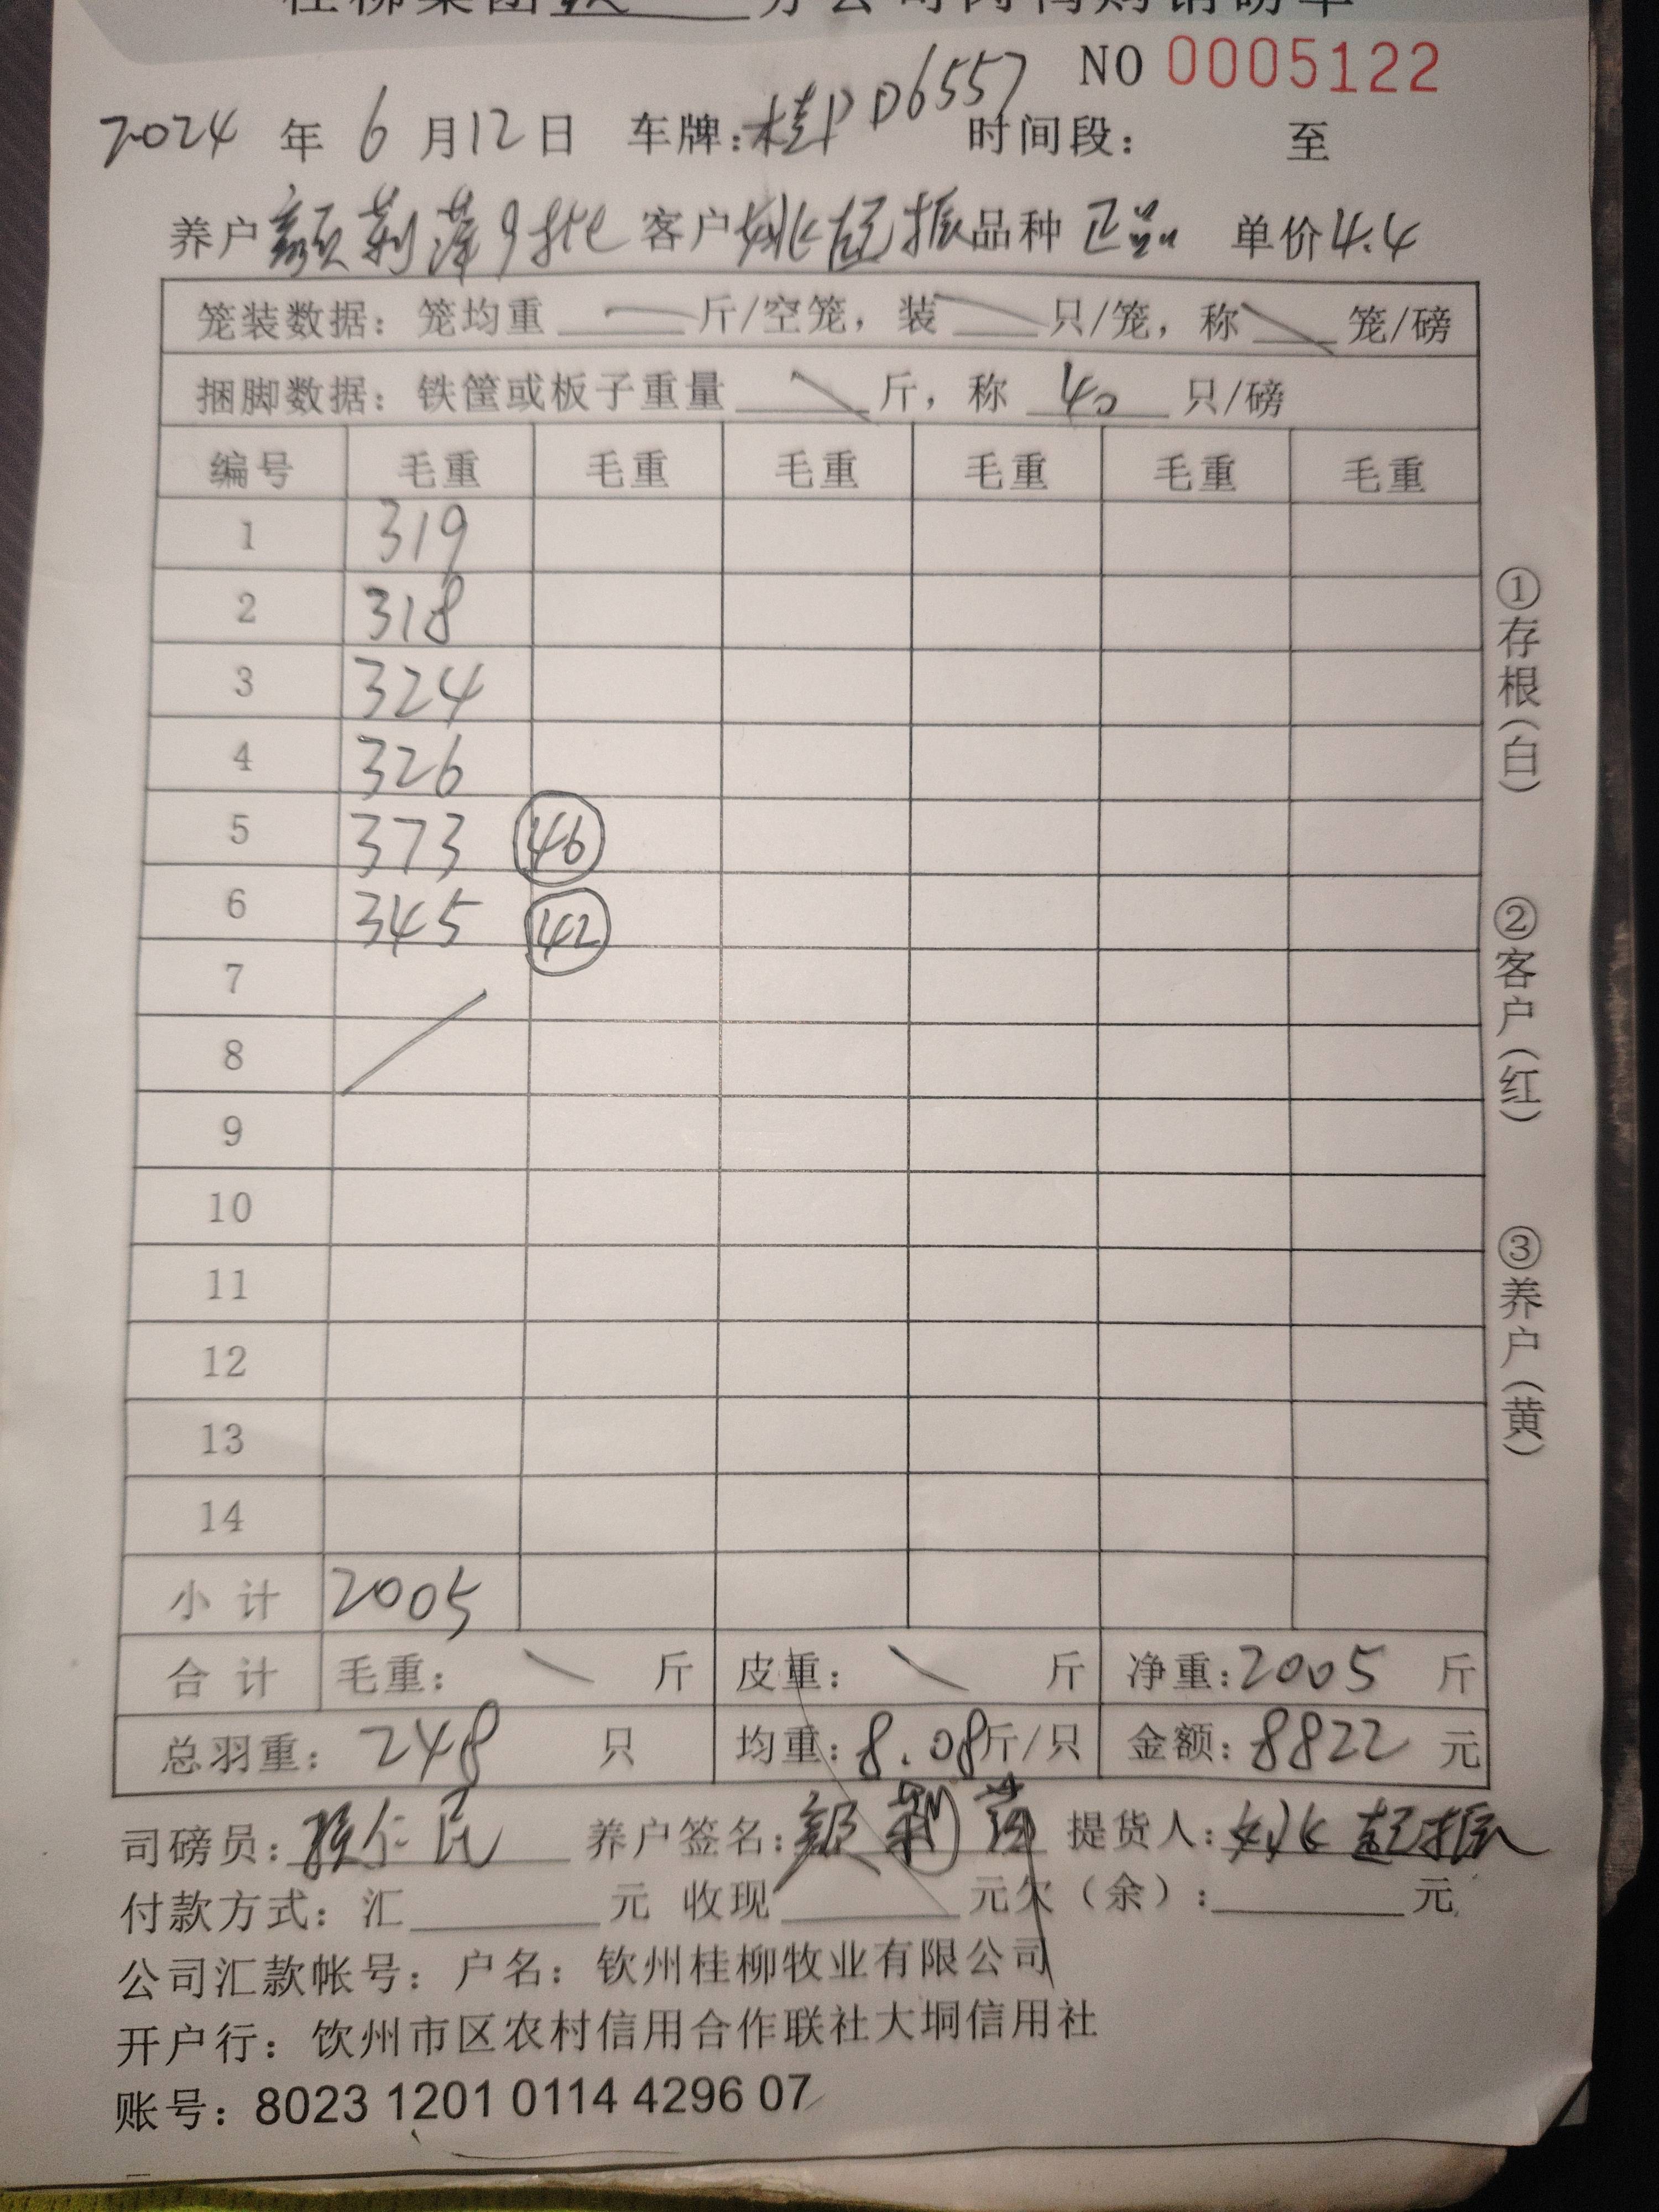 桂柳集团钦 分公司肉鸭购销磅单
NO 0005122
2024 年 6 月 12 日 车牌：桂P D6557 时间段： 至
养户 颜莉萍 9批 客户 姚起振 品种 正品 单价 4.4
笼装数据：笼均重 斤/空笼，装 只/笼，称 笼/磅
捆脚数据：铁筐或板子重量 斤，称 40 只/磅
编号 毛重 毛重 毛重 毛重 毛重 毛重
1 319
2 318
3 324
4 326
5 373 46
6 345 42
7
8
9
10
11
12
13
14
小计 2005
合计 毛重： 斤 皮重： 斤 净重：2005 斤
总羽重：248 只 均重：8.08斤/只 金额：8822 元
司磅员： 仁民 养户签名：颜莉萍 提货人：姚起振
付款方式：汇 元 收现 元欠（余）： 元
公司汇款帐号：户名：钦州桂柳牧业有限公司
开户行：饮州市区农村信用合作联社大垌信用社
账号：8023 1201 0114 4296 07
①存根（白）
②客户（红）
③养户（黄）